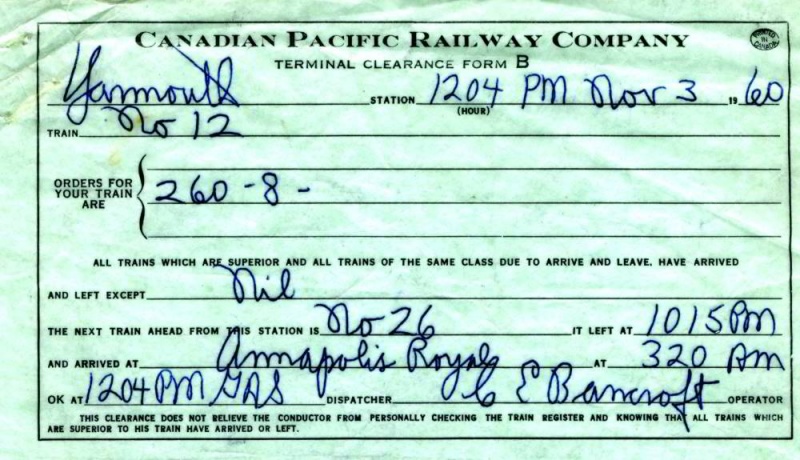 CANADIAN PACIFIC RAILWAY COMPANY
PRINTED IN CANADA
TERMINAL CLEARANCE FORM B
Yarmouth STATION 1204 PM Nov 3 1960
(HOUR)
TRAIN No 12
ORDERS FOR YOUR TRAIN ARE 260-8-
ALL TRAINS WHICH ARE SUPERIOR AND ALL TRAINS OF THE SAME CLASS DUE TO ARRIVE AND LEAVE, HAVE ARRIVED
AND LEFT EXCEPT Nil
THE NEXT TRAIN AHEAD FROM THIS STATION IS No 26 IT LEFT AT 1015 PM
AND ARRIVED AT Annapolis Royal AT 320 AM
OK AT 1204 PM GRS DISPATCHER C E Bancroft OPERATOR
THIS CLEARANCE DOES NOT RELIEVE THE CONDUCTOR FROM PERSONALLY CHECKING THE TRAIN REGISTER AND KNOWING THAT ALL TRAINS WHICH
ARE SUPERIOR TO HIS TRAIN HAVE ARRIVED OR LEFT.